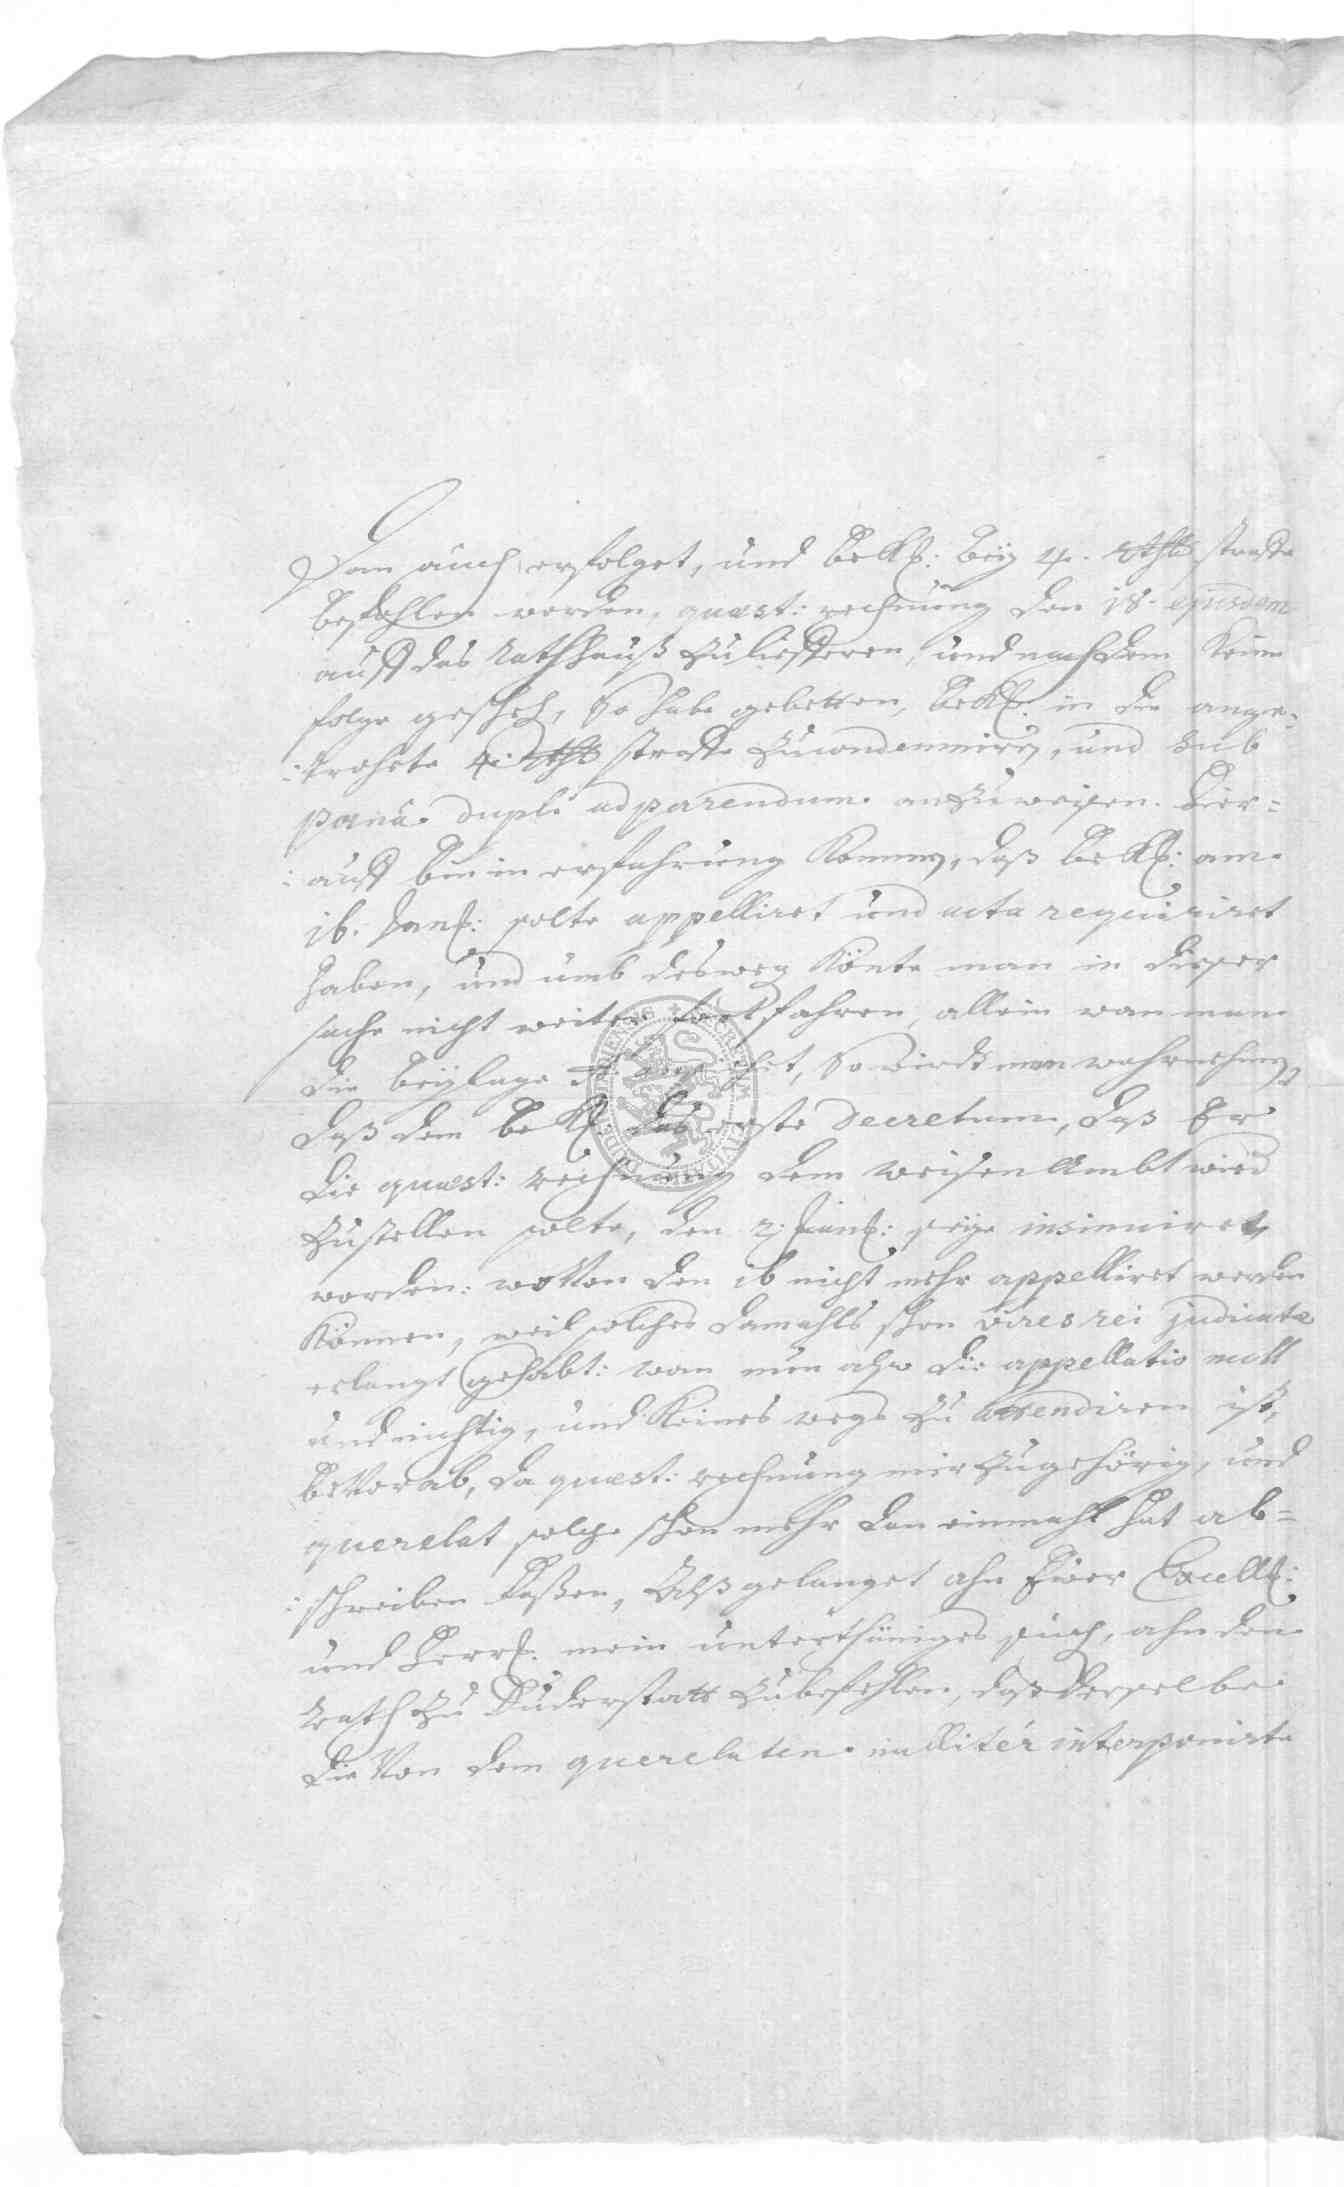 Dan auch erfolget, und bekl: beÿ 4. Rthlr straffe
befohlen worden, quæst: rechnung den 18. ejusdem
auff das Rathhauß zuliefferen, und nachdem keine
folge gescheh, So habe gebetten, bekl: in die ange=
=trohete 4. Rthlr straffe zucondemnirn, und sub
pœnâ dupli ad parendum anzuweisen. Hier=
=auff bin in erfahrung kommen, daß bekl: am
16. Jan: solte appelliret und acta requiriret
haben, und umb desweg könte man in dieser
sache nicht weiter fortfahren, allein wan man
die beÿlage, So wirdt man wahrnehmen,
daß dem bekl: das erste decretum, daß Er
die quæst: rechnung dem weisen Ambt wird
zustellen solte, den 2. Jan: seÿe insinuiret
worden: wovon den 16 nicht mehr appelliret werden
können, weil solches damahls schon vires rei judicatæ
erlangt gehabt: wan nun also die appellatio null
und nichtig, und keines wegs zu attendiren ist,
bevorab, da quæst: rechnung mir zugehörig, und
querelat solche schon mehr dan einmahl hat ab=
=schreiben laßen, Alß gelanget ahn Euer Excell:
und Herrl: mein unterthäniges such, ahn den
Rath zu Duderstatt zubefehlen, daß derselbe
die von dem querelaten nullitér interponirte